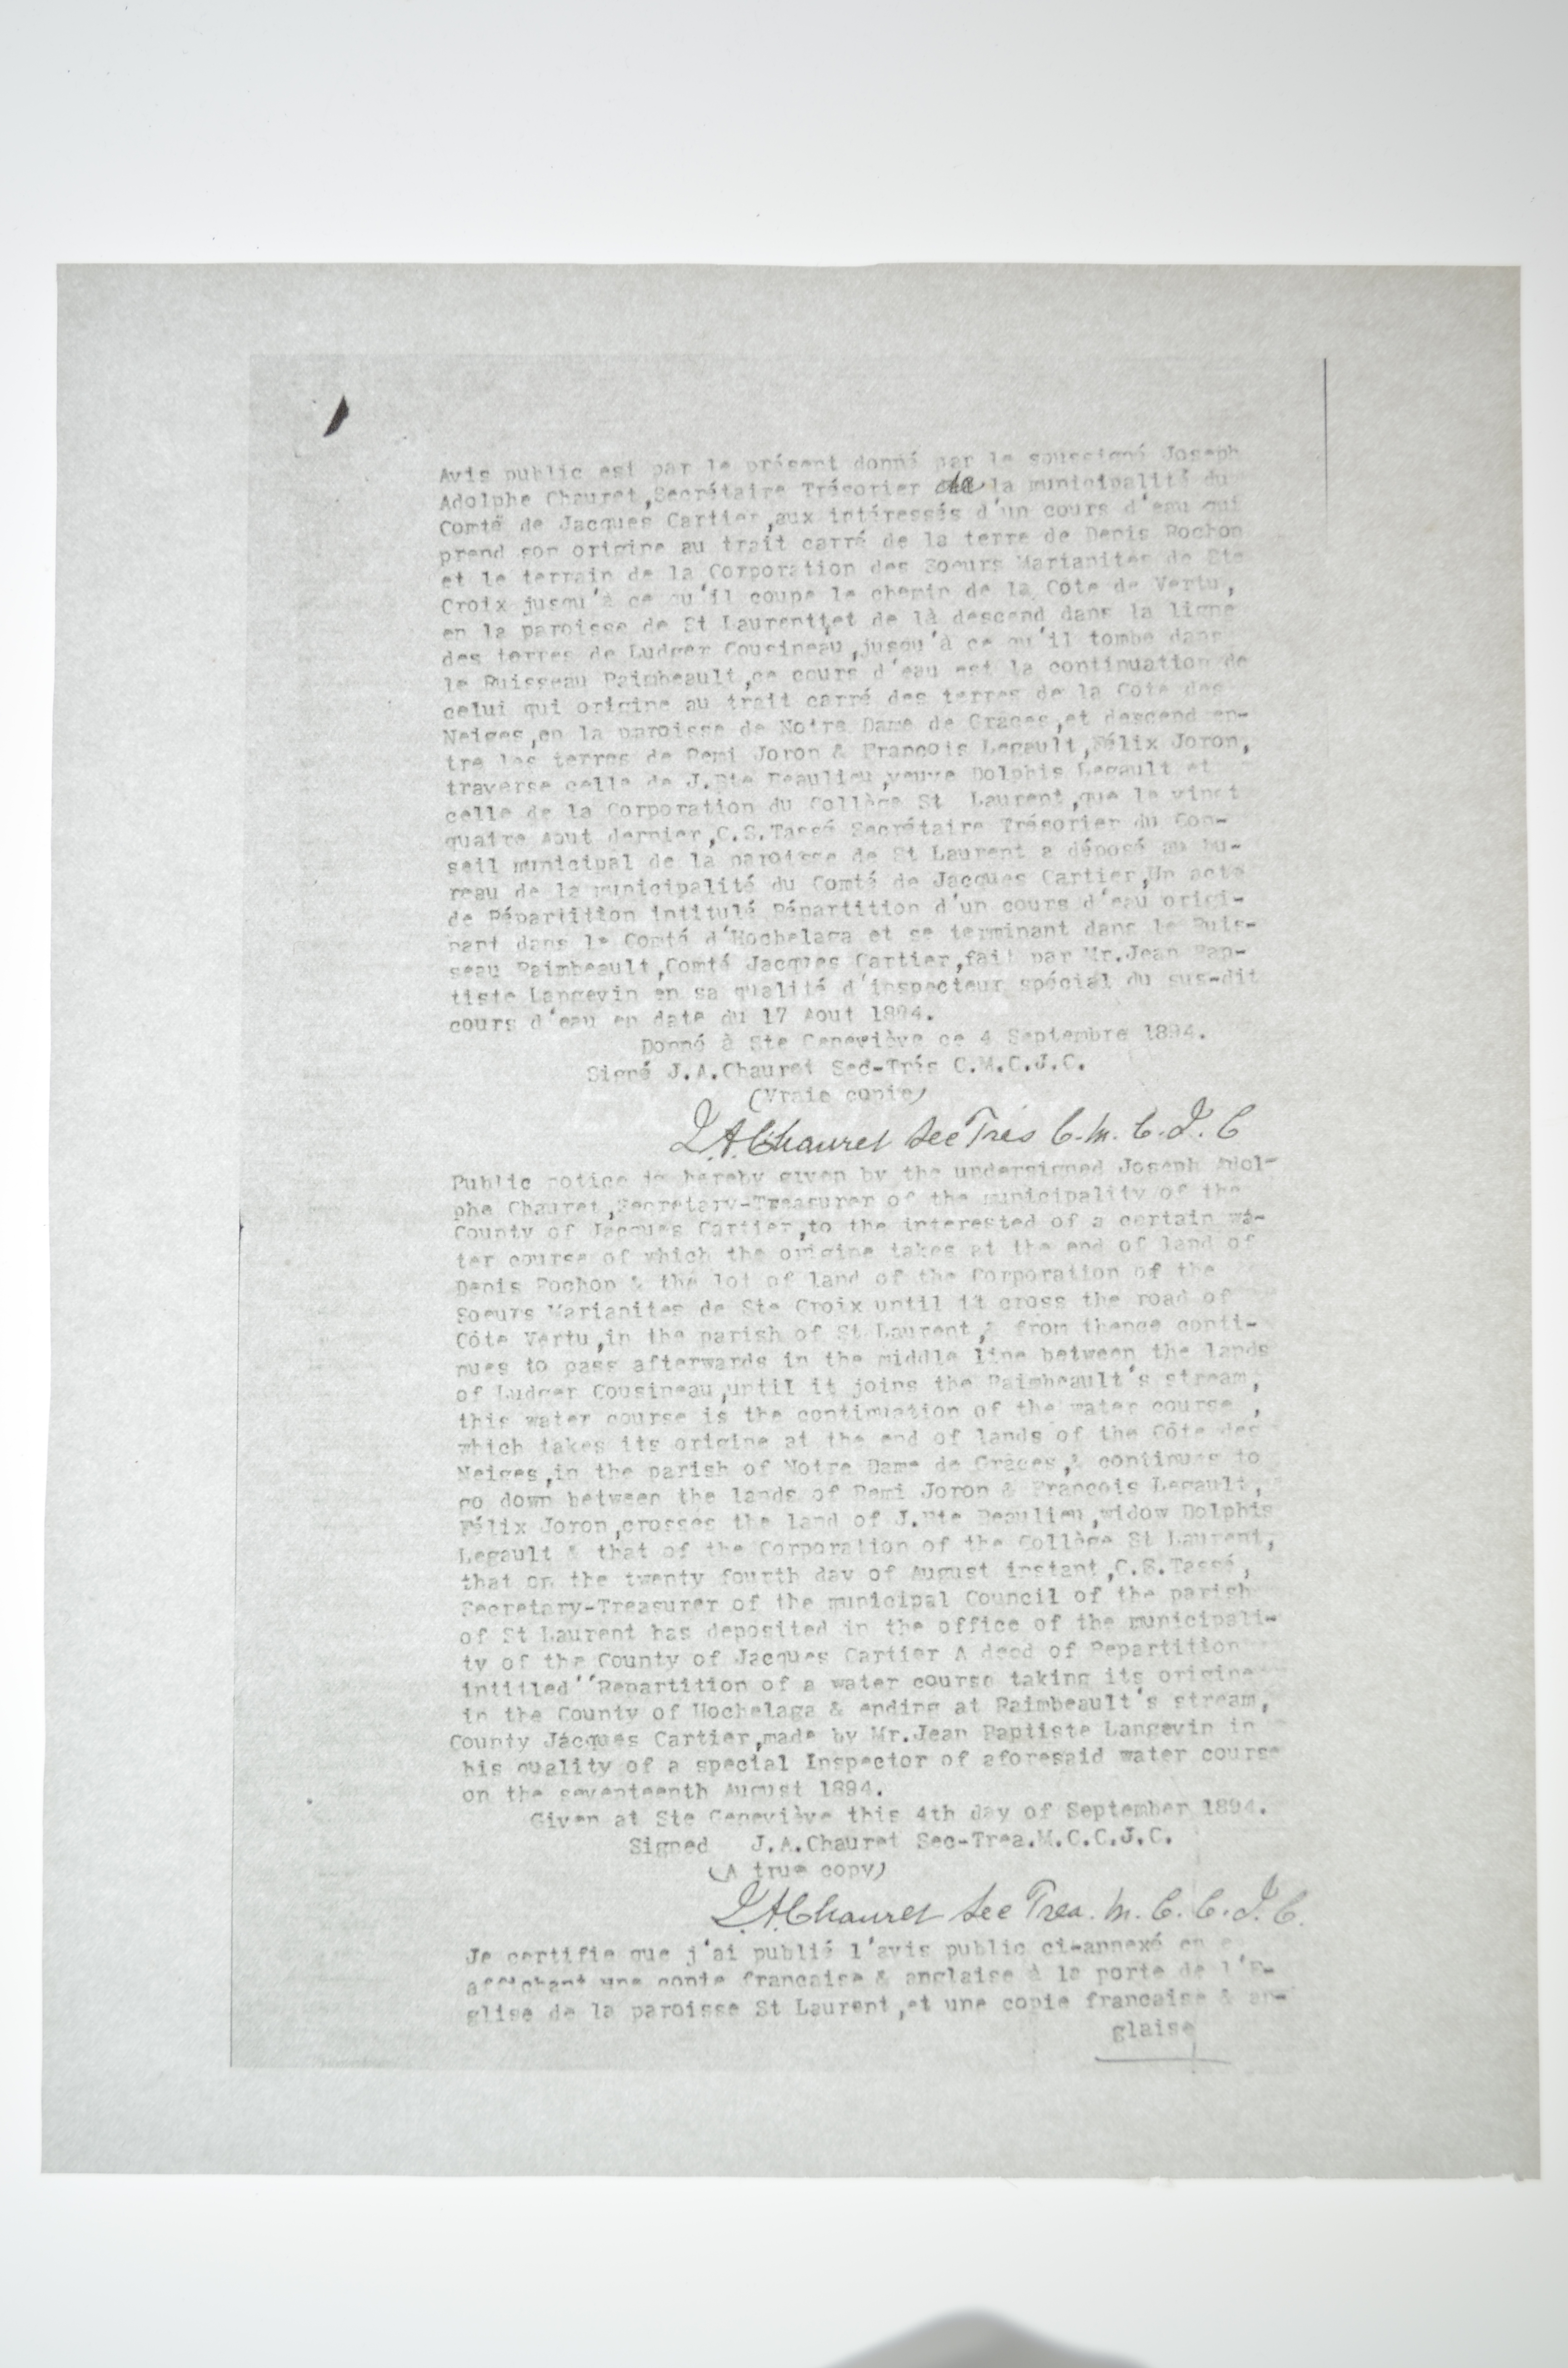 Avis public est par le présent donné par le soussigné Joseph
Adolphe Chauret,Secrétaire Trésorier de la municipalité du
Comté de Jacques Cartier,aux intéressés d'un cours d'eau qui
prend son origine au trait carré de la terre de Denis Rochon
et le terrain de la Corporation des Soeurs Marianites de Ste
Croix jusqu'à ce qu'il coupe le chemin de la Côte de Vertu,
en la paroisse de St Laurent et de là descend dans la ligne
des terres de Ludger Cousineau,jusqu'à ce qu'il tombe dans
le Ruisseau Raimbeault,ce cours d'eau est la continuation de
celui qui origine au trait carré des terres de la Côte des
Neiges,en la paroisse de Notre Dame de Grâces,et descend en-
tre les terres de Remi Joron & Francois Legault,Félix Joron,
traverse celle de J.Bte Beaulieu,veuve Dolphis Legault et
celle de la Corporation du Collège St Laurent,que le vingt
quatre Aout dernier,C.S.Tassé Secrétaire Trésorier du Con-
seil municipal de la paroisse de St Laurent a déposé au bu-
reau de la municipalité du Comté de Jacques Cartier,Un acte
de Répartition intitulé Répartition d'un cours d'eau origi-
nant dans le Comté d'Hochelaga et se terminant dans le Ruis-
seau Raimbeault,Comté Jacques Cartier,fait par Mr.Jean Bap-
tiste Langevin en sa qualité d'inspecteur spécial du sus-dit
cours d'eau en date du 17 Aout 1894.
Donné à Ste Geneviève ce 4 Septembre 1894.
Signé J.A.Chauret Sec-Trés C.M.C.J.C.
(Vraie copie)
J.A.Chauret Sec Trés C.M.C.J.C
Public notice is hereby given by the undersigned Joseph Adol-
phe Chauret,Secretary-Treasurer of the municipality of the
County of Jacques Cartier,to the interested of a certain wa-
ter course of which the origine takes at the end of land of
Denis Rochon & the lot of land of the Corporation of the
Soeurs Marianites de Ste Croix until it cross the road of
Côte Vertu,in the parish of St Laurent,& from thence conti-
nues to pass afterwards in the middle line between the lands
of Ludger Cousineau,until it joins the Raimbeault's stream,
this water course is the continuation of the water course ,
which takes its origine at the end of lands of the Côte des
Neiges,in the parish of Notre Dame de Grâces,& continues to
go down between the lands of Remi Joron & François Legault,
Félix Joron,crosses the land of J.Bte Beaulieu,widow Dolphis
Legault & that of the Corporation of the Collège St Laurent,
that on the twenty fourth day of August instant,C.S.Tassé,
Secretary-Treasurer of the municipal Council of the parish
of St Laurent has deposited in the office of the municipali-
ty of the County of Jacques Cartier A deed of Repartition
intitled''Repartition of a water course taking its origine
in the County of Hochelaga & ending at Raimbeault's stream,
County Jacques Cartier,made by Mr.Jean Baptiste Langevin in
his quality of a special Inspector of aforesaid water course
on the seventeenth August 1894.
Given at Ste Geneviève this 4th day of September 1894.
Signed J.A.Chauret Sec-Trea.M.C.C.J.C.
(A true copy)
J.A.Chauret Sec Trea. M.C.C.J.C.
Je certifie que j'ai publié l'avis public ci-annexé en
affichant une copie francaise & anglaise à la porte de l'E-
glise de la paroisse St Laurent,et une copie francaise & an-
glaise